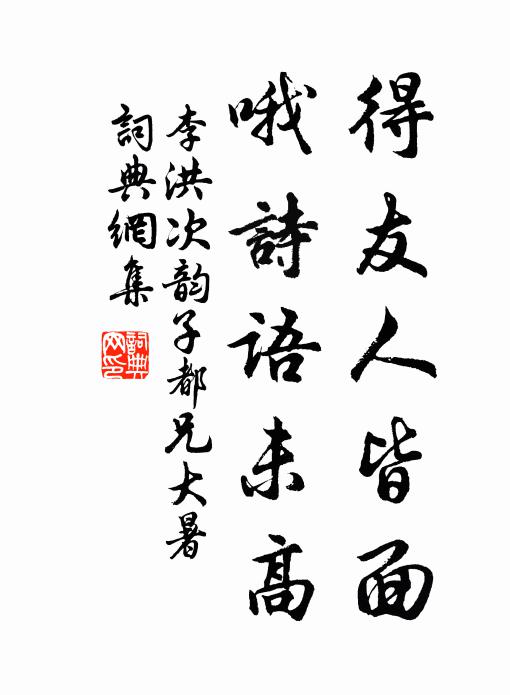 得友人皆面
哦詩語未高
李洪次韵子都兄大暑
詞典網集
詞典網印